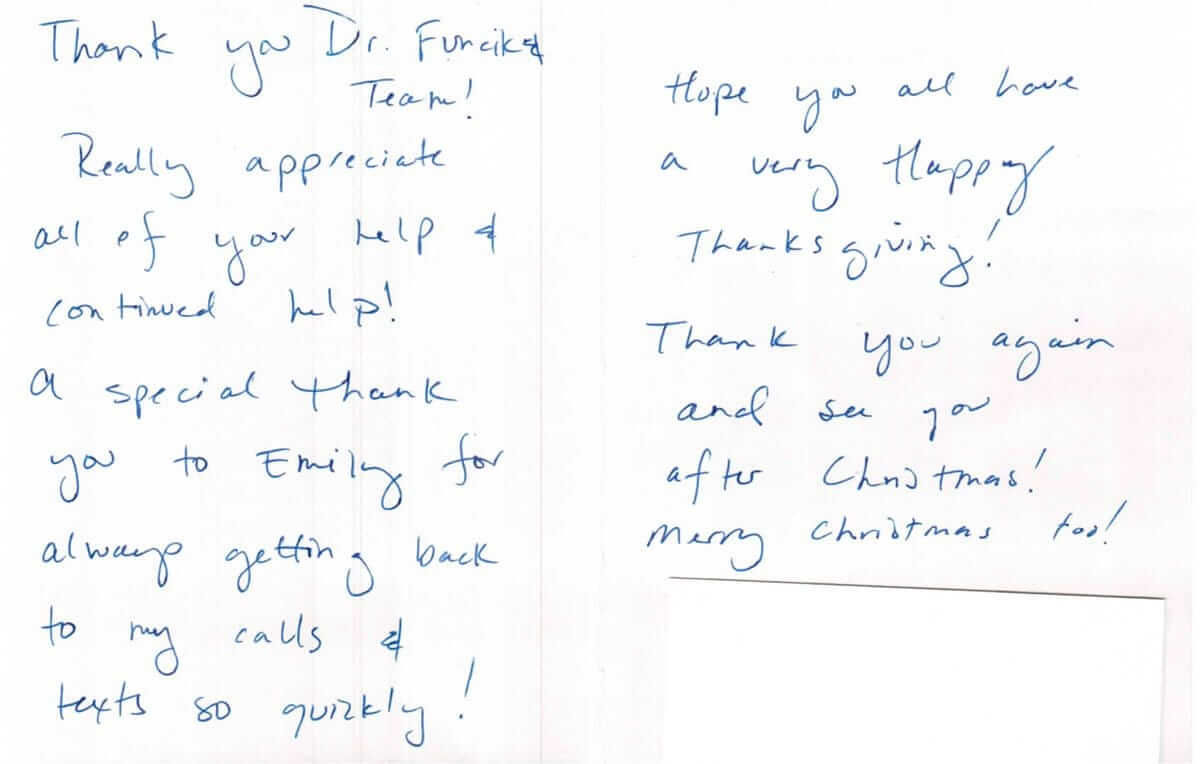 Thank you Dr. Funcik &
Team!
Really appreciate
all of your help &
continued help!
A special thank
you to Emily for
always getting back
to my calls &
texts so quickly!
Hope you all have
a very Happy
Thanksgiving!
Thank you again
and see you
after Christmas!
Merry Christmas too!